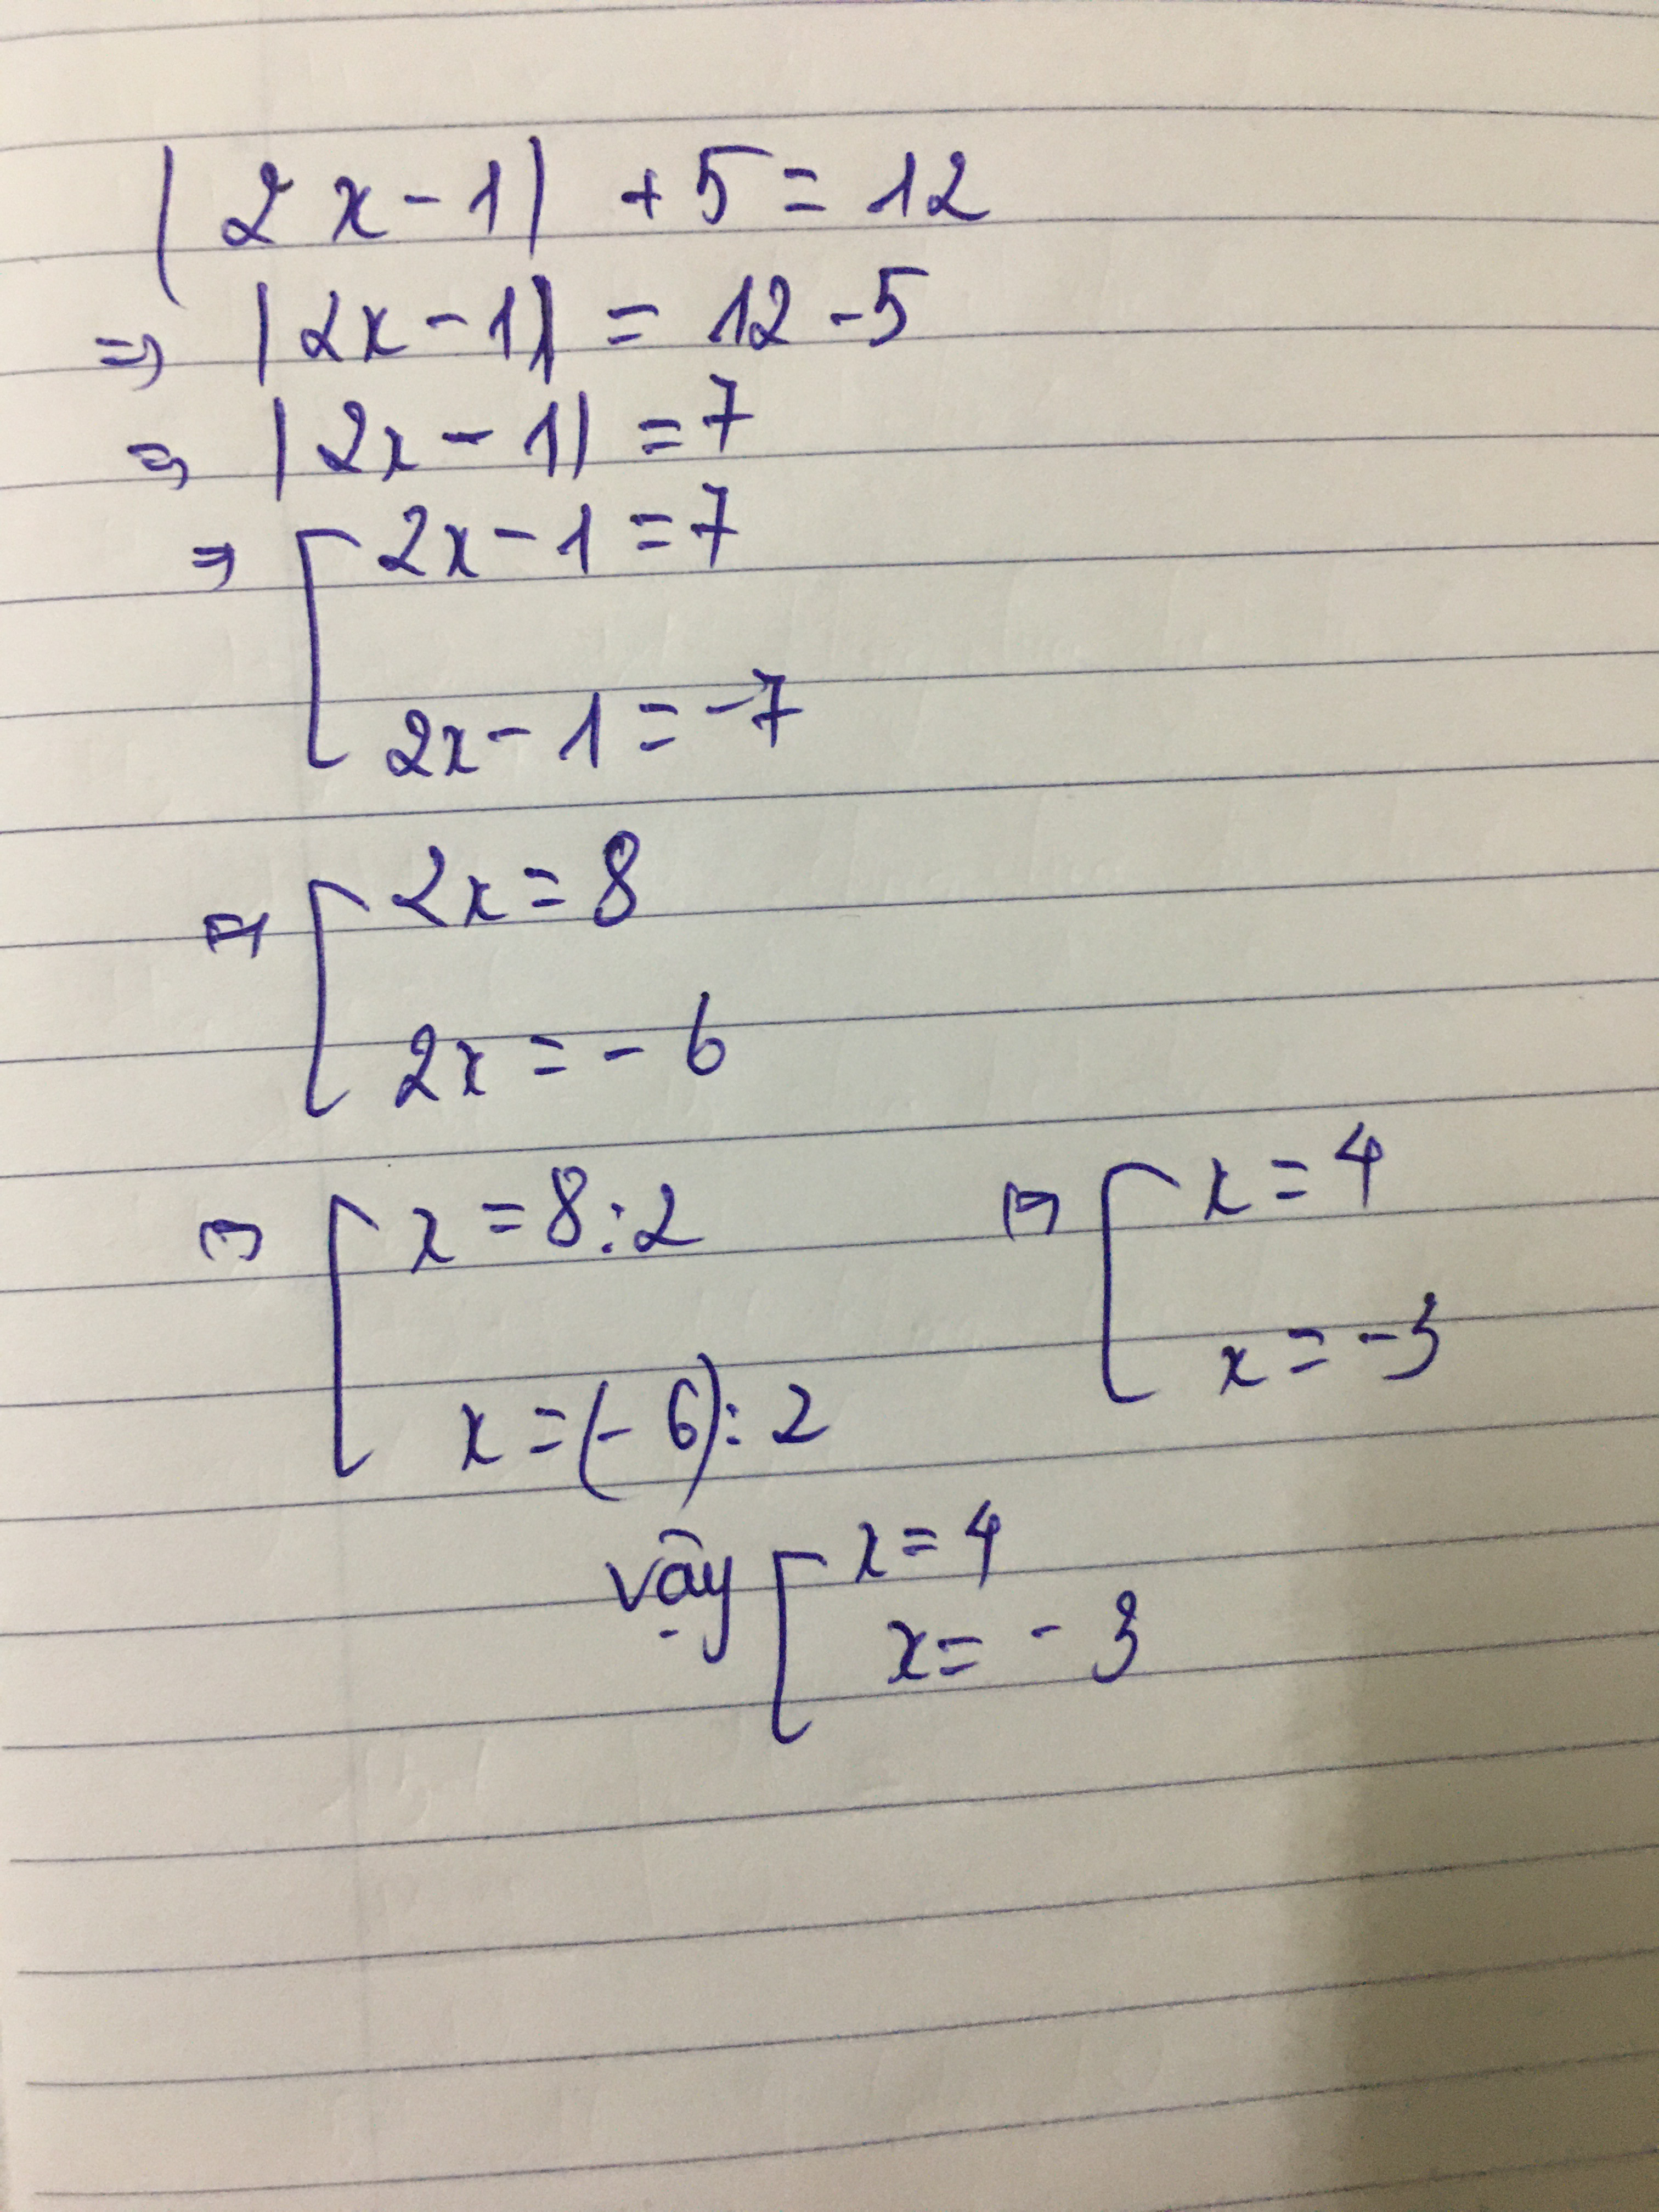 |2x-1| +5=12
=> |2x-1| = 12-5
=> |2x-1| =7
=> [ 2x-1=7
2x-1=-7
=> [ 2x=8
2x=-6
=> [ x=8:2
x=(-6):2
=> [ x=4
x=-3
vậy [ x=4
x=-3